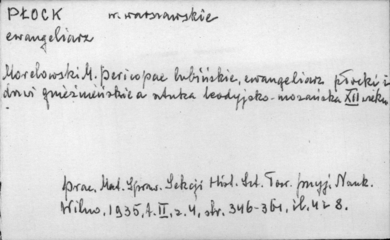 PŁOCK w. warszawskie
ewangeliarz
Morelowski M. Pericopae lubińskie, ewangeliarz płocki i
drzwi gnieźnieńskie a sztuka leodyjsko-mozańska XII wieku
Prac. Mat. Spraw. Sekcji Hist. Szt. Tow. Przyj. Nauk.
Wilno, 1935, t. II, z. 4, str. 346-361, il. 4 i 8.